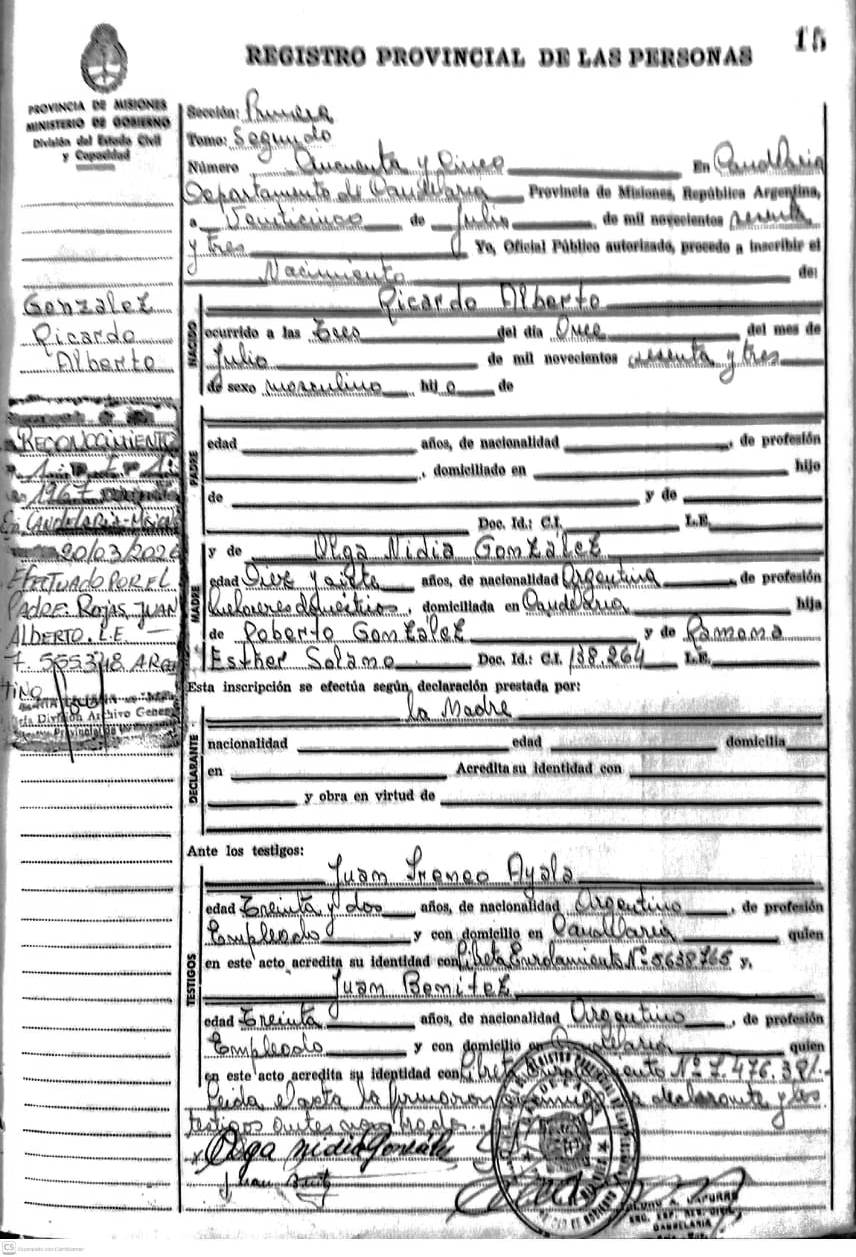 15
REGISTRO PROVINCIAL DE LAS PERSONAS
PROVINCIA DE MISIONES
MINISTERIO DE GOBIERNO
División del Estado Civil
y Capacidad
Gonzalez
Ricardo
Alberto
RECONOCIMIENTO
1967
En CANDELARIA-Misiones
20/03/202
EFECTUADO POR EL
PADRE: ROJAS, JUAN
ALBERTO. L.E.
7.555348 ARGEN
TINO
División Archivo General
Sección: Primera
Tomo: Segundo
Número Cincuenta y Cinco En Candelaria
Departamento de Candelaria Provincia de Misiones, República Argentina,
a Veinticinco de Julio de mil novecientos sesenta
y tres Yo, Oficial Público autorizado, procedo a inscribir el
Nacimiento de:
NACIDO
Ricardo Alberto
ocurrido a las tres del día Once del mes de
Julio de mil novecientos sesenta y tres
de sexo masculino hijo de
PADRE
edad años, de nacionalidad , de profesión
, domiciliado en hijo
de y de
Doc. Id.: C.I. L.E.
MADRE
y de Olga Nidia Gonzalez
edad Diez y años, de nacionalidad Argentina , de profesión
Quehaceres domésticos , domiciliada en Candelaria hija
de Roberto Gonzalez y de Ramona
Esther Solano Doc. Id.: C.I. 138.264 L.E.
Esta inscripción se efectúa según declaración prestada por:
DECLARANTE
la Madre
nacionalidad edad domicilia
en Acredita su identidad con
y obra en virtud de
Ante los testigos:
TESTIGOS
Juan Ireneo Ayala
edad Treinta y dos años, de nacionalidad Argentino , de profesión
Empleado y con domicilio en Candelaria quien
en este acto acredita su identidad con Libreta Enrolamiento Nº 5638765 y,
Juan Benitez
edad Treinta años, de nacionalidad Argentino , de profesión
Empleado y con domicilio en Candelaria quien
en este acto acredita su identidad con Libreta Enrolamiento Nº 7.476.381.-
Leida el acta la firmaron conmigo la declarante y los
testigos antes nombrados.
Olga Nidia Gonzalez
Juan Benitz
CANDELARIA
CS Escaneado con CamScanner